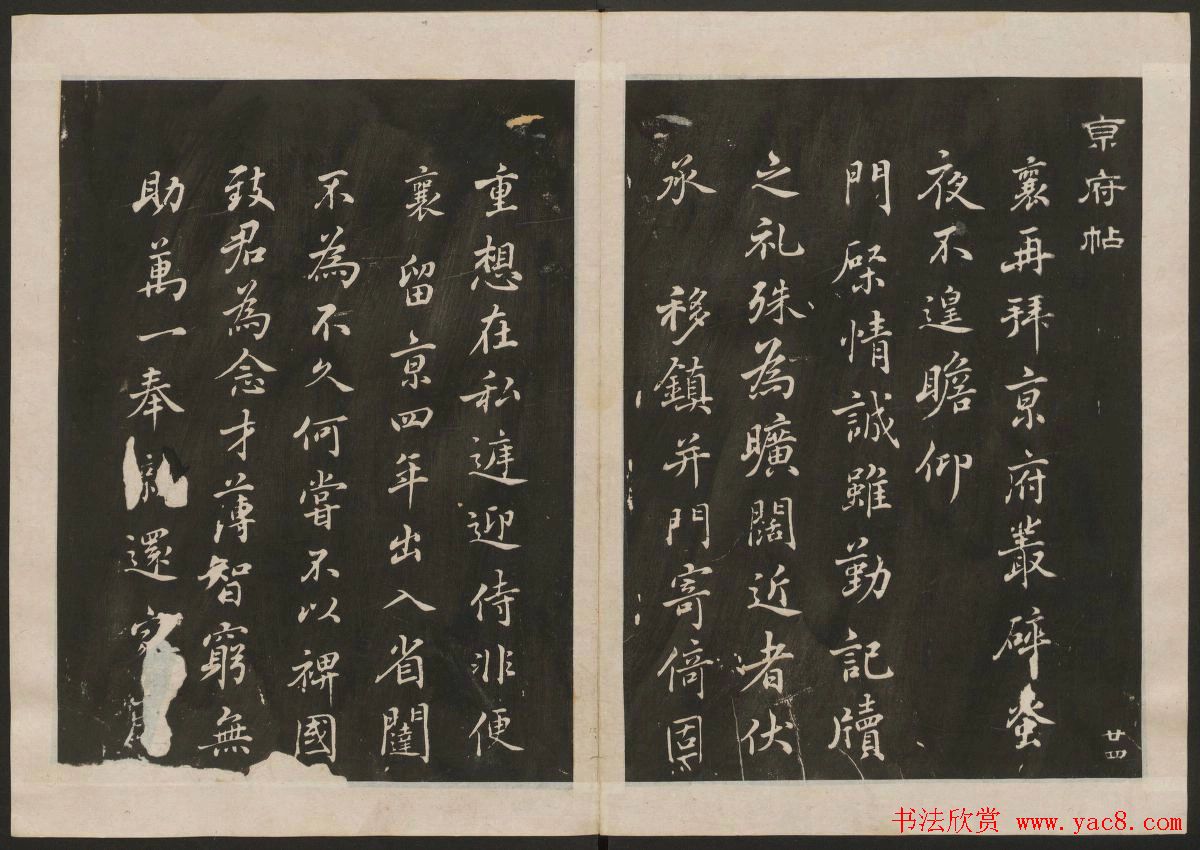 京府帖
襄再拜京府叢碎蚤
夜不遑瞻仰
門檗情誠雖勤記牘
之礼殊為曠闊近者伏
承　移鎮并門寄倚固
廿四
重想在私遽迎侍非便
襄　留京四年出入省闥
不為不久何嘗不以裨國
致君為念才薄智窮無
助萬一奉還
书法欣赏 www.yac8.com